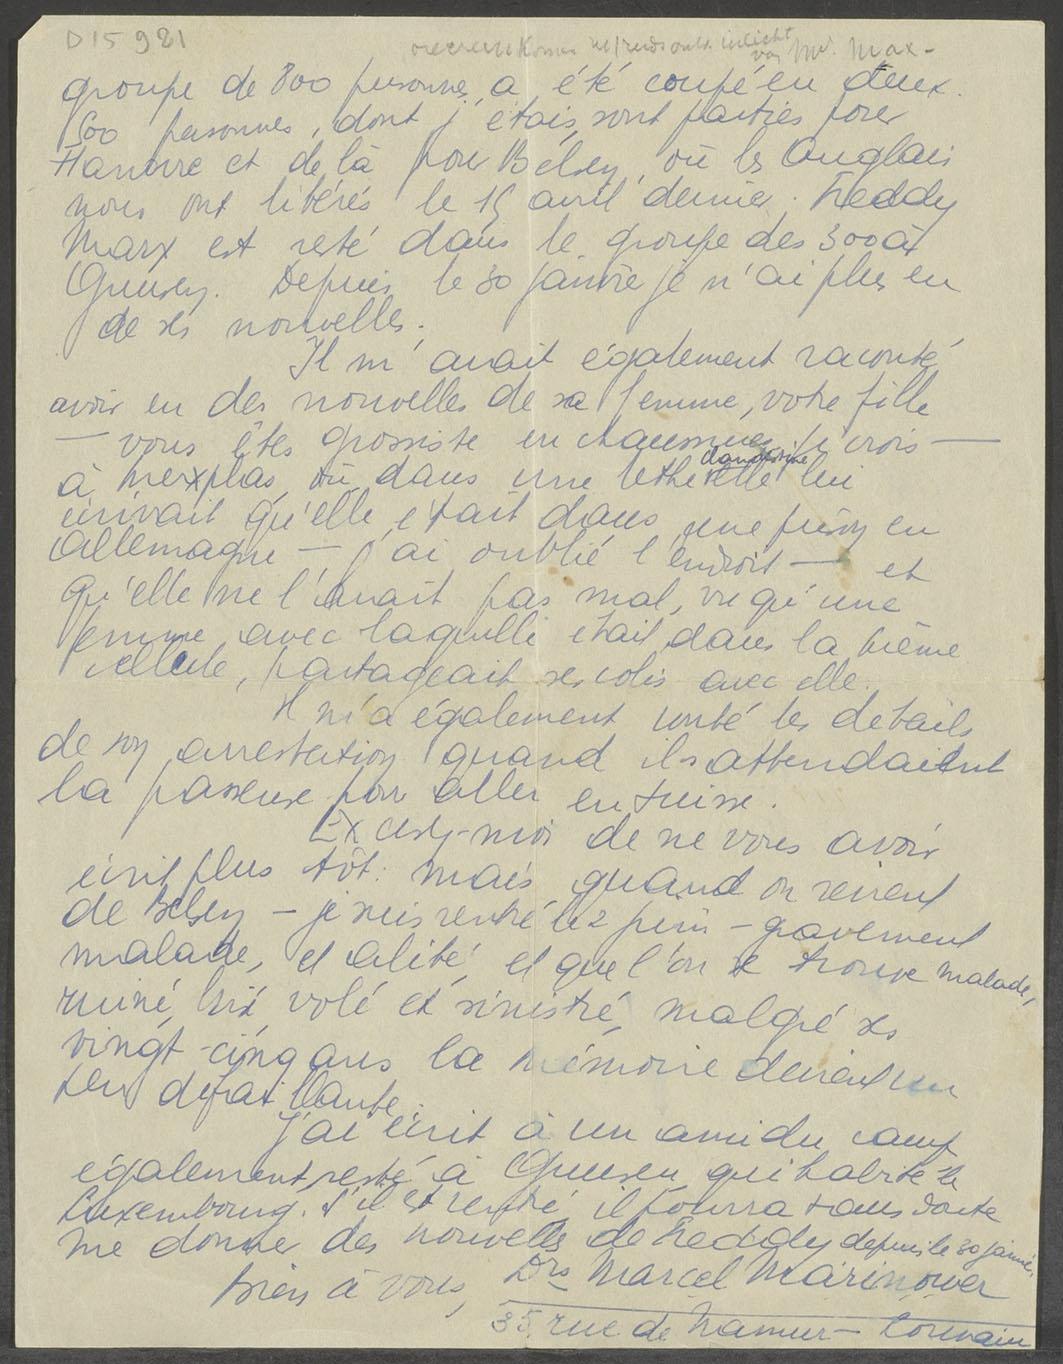 D15921
van Mr. Max-
groupe de 800 personnes, a été coupé en deux.
500 personnes, dont j'étais, sont parties pour
Hanovre et de là pour Belsen, où les Anglais
nous ont libérés le 15 avril dernier. Freddy
Marx est resté dans le groupe des 300 à
Gunsen. Depuis le 30 janvier je n'ai plus eu
de ses nouvelles.
Il m'avait également raconté
avoir eu des nouvelles de sa femme, votre fille
— vous êtes grossiste en chaussures, je crois —
à Merxplas, où dans une lettre clandestine elle lui
écrivait qu'elle était dans une prison en
Allemagne — j'ai oublié l'endroit — et
qu'elle ne l'avait pas mal, vu qu'une
femme, avec laquelle était dans la même
cellule, partageait ses colis avec elle.
Il m'a également conté les details
de son arrestation quand ils attendaient
la passeuse pour aller en Suisse.
Excusez-moi de ne vous avoir
écrit plus tôt: mais quand on revient
de Belsen — je suis rentré le 2 juin — gravement
malade, et alité, et que l'on se trouve malade,
ruiné, volé et sinistré, malgré ses
vingt-cinq ans la mémoire devient un
peu defaillante.
J'ai écrit à un ami du camp
également resté à Gunsen qui habite le
Luxembourg. S'il est rentré, il pourra sans doute
me donner des nouvelles de Freddy depuis le 30 janvier.
Bien à vous,
Drs Marcel Marinower
35, rue de Namur — Louvain